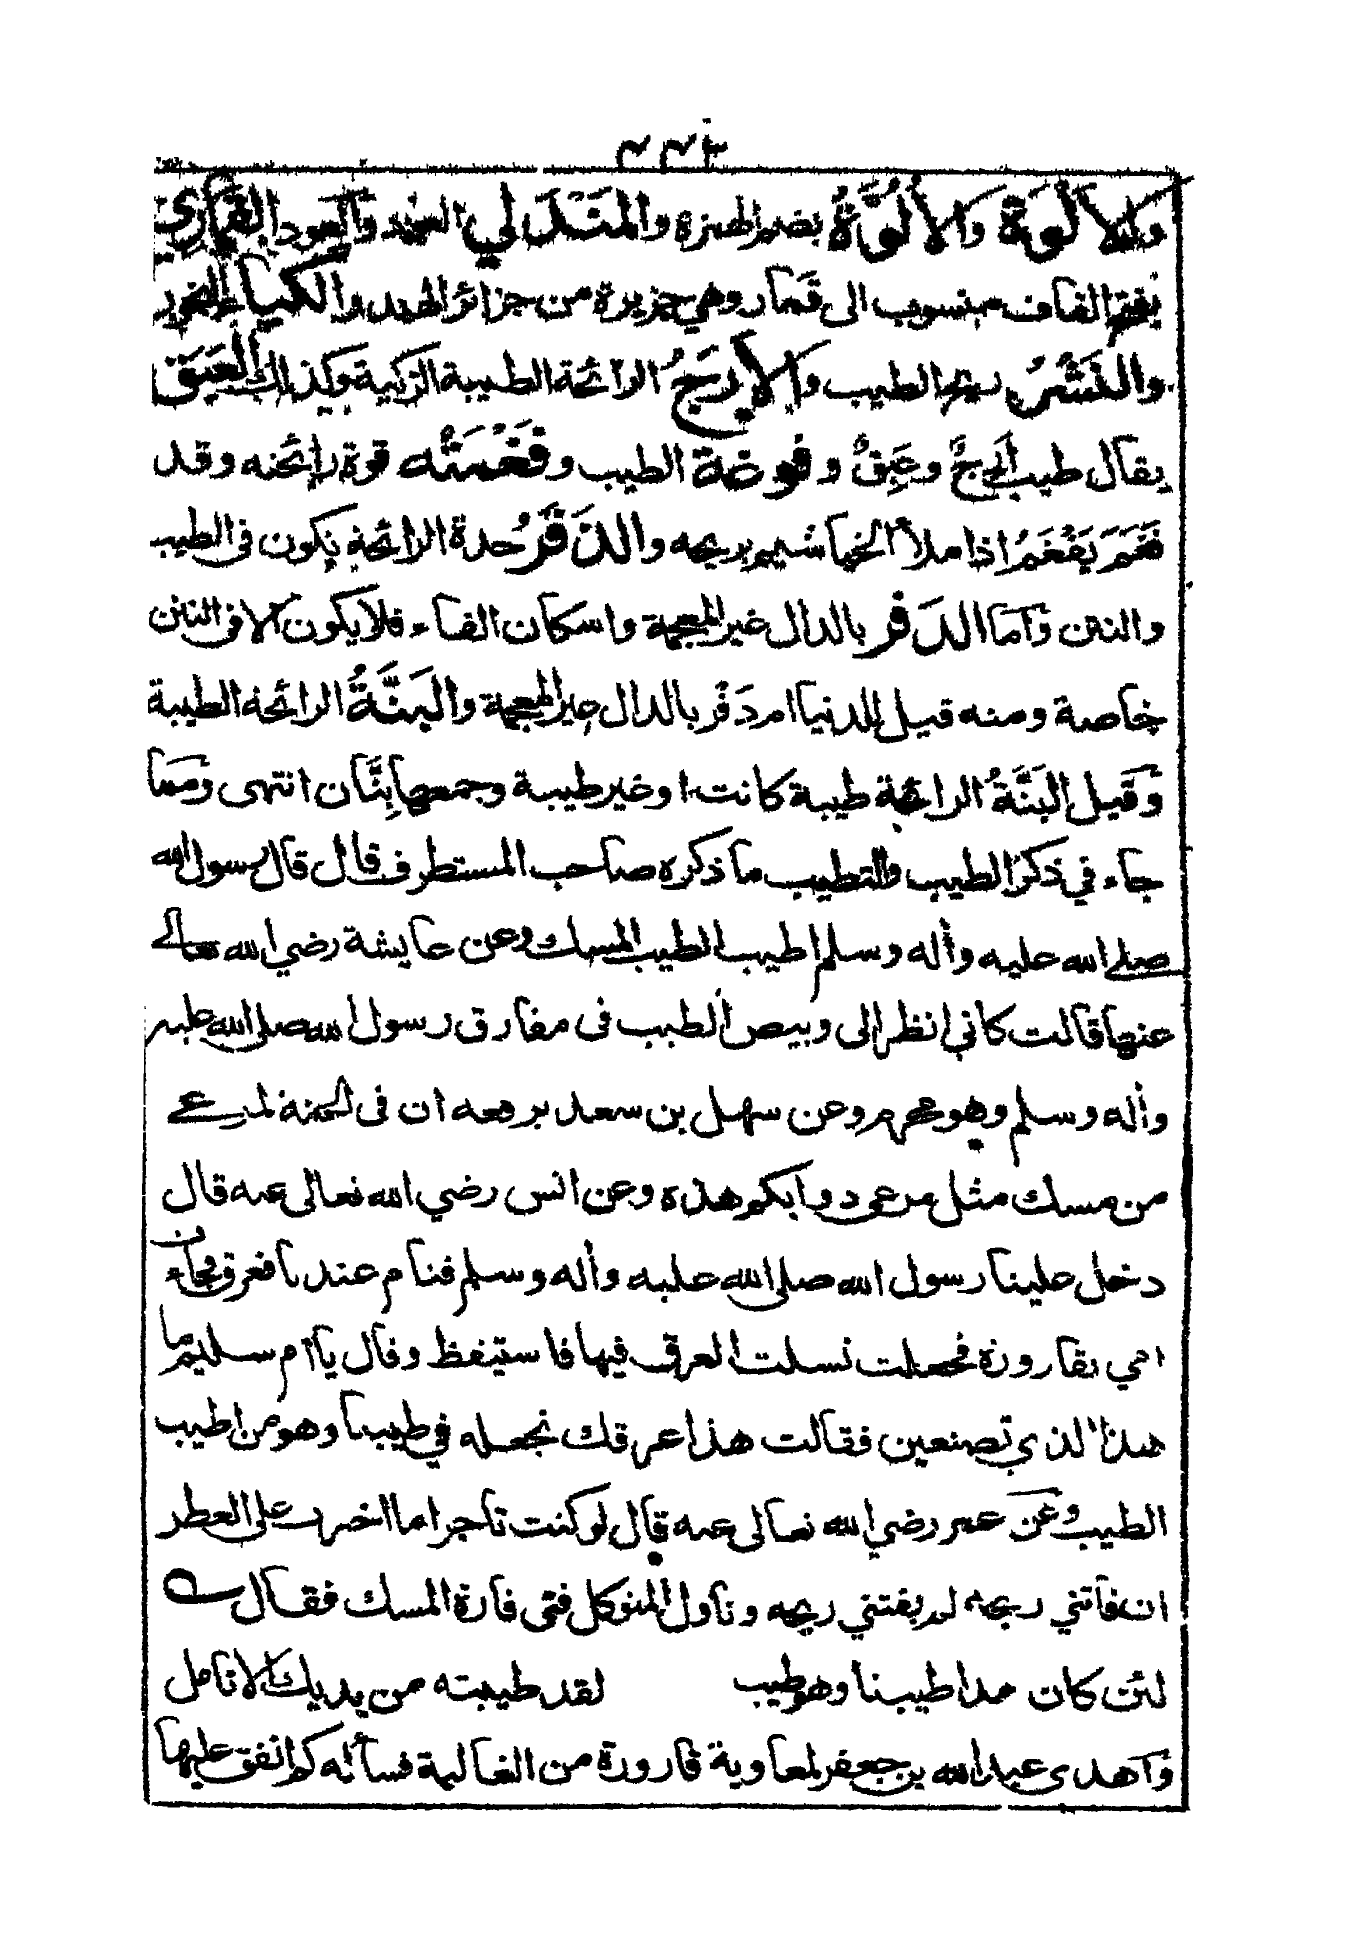 ٢٢٣
والألوة والألُوَّةُ بضم الهمزة والمَنْدَلي العود والعود القماري
بفتح القاف منسوب الى قَمار وهي جزيرة من جزائر الهند والكباء البخور
والنَشْرُ ريح الطيب والأرَجُ الرائحة الطيبة الزكية وكذلك العَبَق
يقال طيب أرِجٌ وعَبِقٌ و فوغة الطيب وفَغْمَتُه قوة رائحته وقد
فَغَمَ يَفْغَمُ اذا ملأ الخياشيم بريحه والذَفَرُ حدة الرائحة يكون فى الطيب
والنتن وَأما الدَفْر بالدال غير المعجمة واسكان الفاء فلا يكون الا فى النتن
خاصة ومنه قيل للدنيا ام دَفْر بالدال غير المعجمة والبَنَّةُ الرائحة الطيبة
وَقيل البَنَّةُ الرائحة طيبة كانت او غير طيبة وجمعها بِنَان انتهى وَمما
جاء في ذكر الطيب والتطيب ما ذكره صاحب المستطرف قال قال رسول الله
صلى الله عليه وأله وسلم اطيب الطيب المسك وعن عايشة رضي الله تعالى
عنها قالت كاني انظر الى وبيص الطيب فى مفارق رسول الله صلى الله عليه
وأله وسلم وهو محرم وعن سهل بن سعد يرفعه ان فى الجنة لمرعى
من مسك مثل مرعى دوابكم هذه وعن انس رضي الله تعالى عنه قال
دخل علينا رسول الله صلى الله عليه وأله وسلم فنام عندنا فعرق فجاءت
امي بقارورة فجعلت تسلت العرق فيها فاستيقظ وقال يا أم سليم ما
هذا الذي تصنعين فقالت هذا عرقك نجعله في طيبنا وهو من اطيب
الطيب وعَن عمر رضي الله تعالى عنه قال لو كنت تاجرا ما اخترت على العطر
ان فاتني ربحه لم يفتني ريحه وناول المتوكل فتى فارة المسك فقال
لئن كان هذا طيبنا وهو طيب لقد طيبته من يديك الانامل
وَاهدى عبد الله بن جعفر لمعاوية قارورة من الغالية فسأله كم انفق عليها